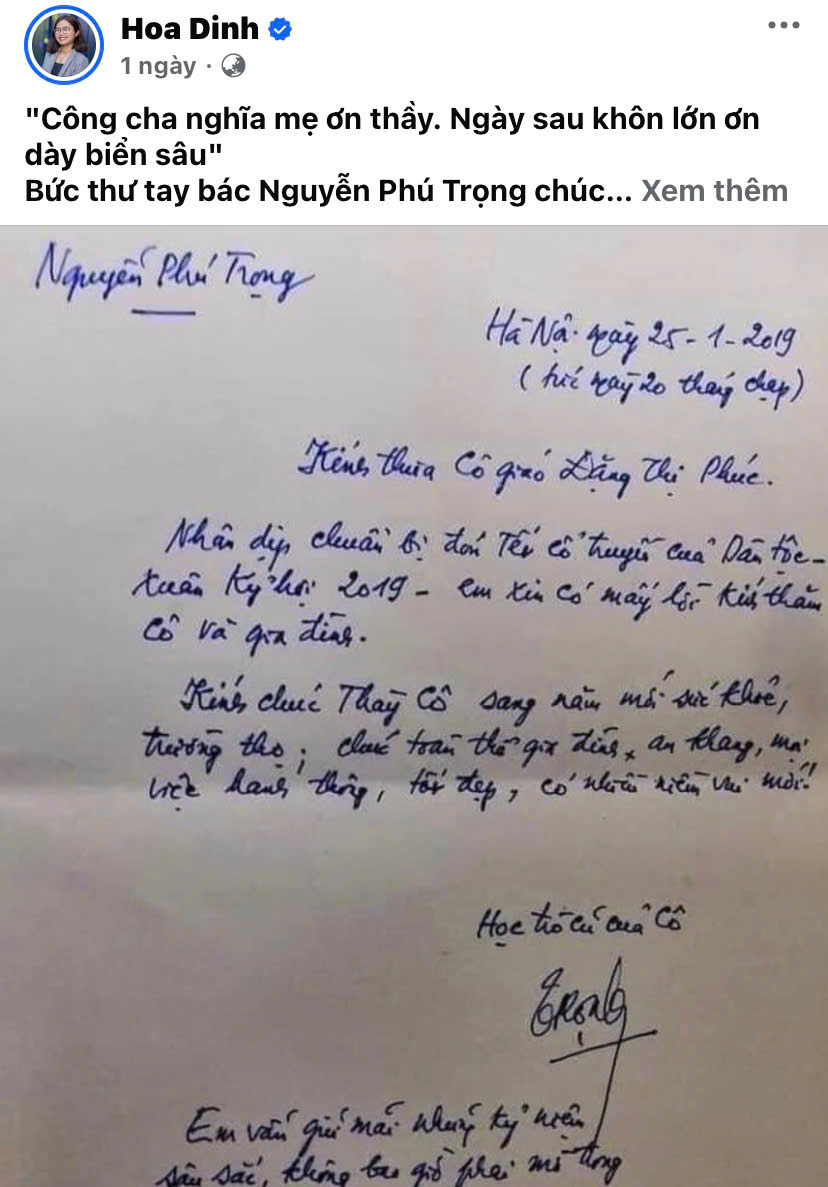 Hoa Dinh
1 ngày ·
"Công cha nghĩa mẹ ơn thầy. Ngày sau khôn lớn ơn
dày biển sâu"
Bức thư tay bác Nguyễn Phú Trọng chúc... Xem thêm
Nguyễn Phú Trọng
Hà Nội ngày 25-1-2019
(tức ngày 20 tháng chạp)
Kính thưa Cô giáo Đặng Thị Phúc.
Nhân dịp chuẩn bị đón Tết cổ truyền của Dân tộc -
Xuân Kỷ hợi 2019 - em xin có mấy lời kính thăm
Cô và gia đình.
Kính chúc Thầy Cô sang năm mới sức khỏe,
trường thọ; chúc toàn thể gia đình, an khang, mọi
việc hanh thông, tốt đẹp, có nhiều niềm vui mới!
Học trò cũ của Cô
Trọng
Em vẫn giữ mãi những kỷ niệm
sâu sắc, không bao giờ phai mờ trong